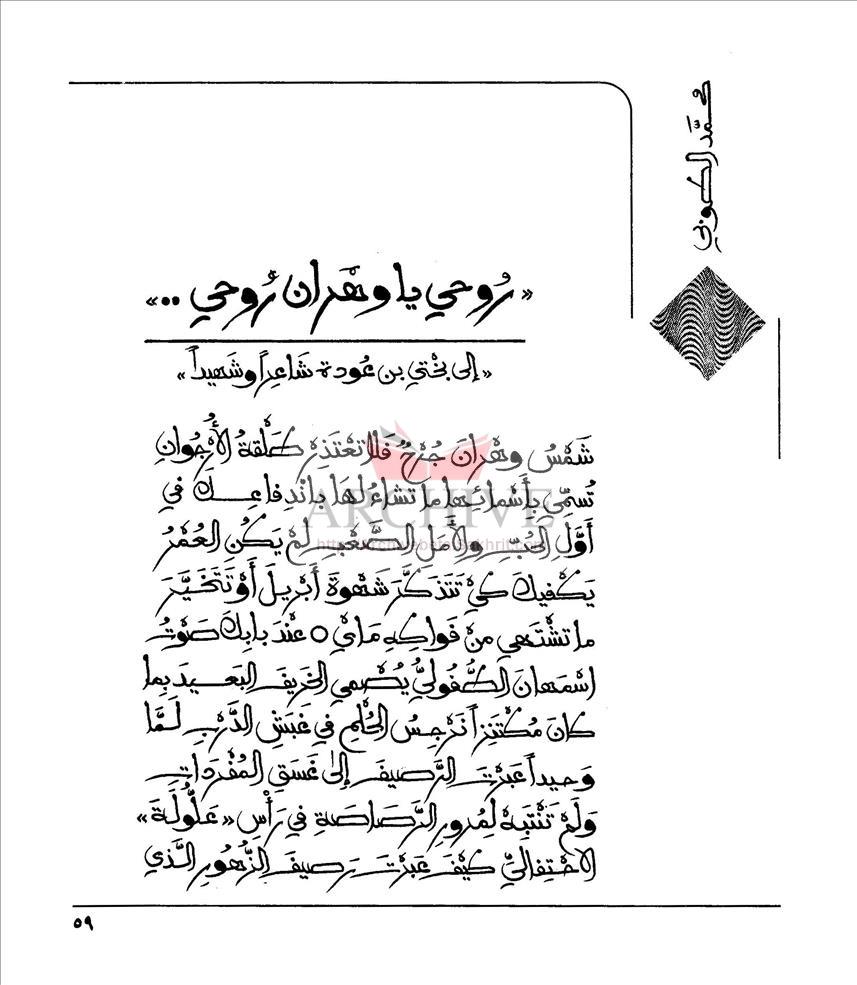 محمّد الطوبي
«رُوحي يا وهران رُوحي ..»
«إلى بختي بن عُودة شاعراً وشهيداً»
شَمْسُ وهْرانَ جُرْحٌ فَلا تعْتذِرْ طلْقةُ الأُرْجُوانِ
تُسمِّي بأَسْمائها ما تشاءُ لهَا باندِفاعِكَ في
أوَّلِ الحُبِّ والأملِ الصَّعْبِ لمْ يَكُنِ العُمْرُ
يَكْفيكَ كيْ تتذكَّرَ شهْوةَ أبْريلَ أوْ تَتَخَيَّرَ
ما تشْتَهي منْ فواكِهِ مَايْ ٥ عنْدَ بابِكَ صَوْتُ
اسْمَهانَ الطُّفُوليُّ يُصْمي الخَريفَ البَعيدَ بِما
كانَ مُكْتنِزاً نرْجِسُ الحُلْمِ في غَبَشِ الدَّرْبِ لَمَّا
وَحيداً عَبَرْتَ الرَّصيفَ إلى غَسَقِ المُفْرَداتِ
وَلَمْ تَنْتبِهْ لِمُرورِ الرَّصَاصَةِ في رَأْسِ «عَلُّولَةَ»
الاحْتِفاليِّ كيْفَ عَبَرْتَ رَصيفَ الزُّهُورِ الَّذي
٥٩
ARCHIVE